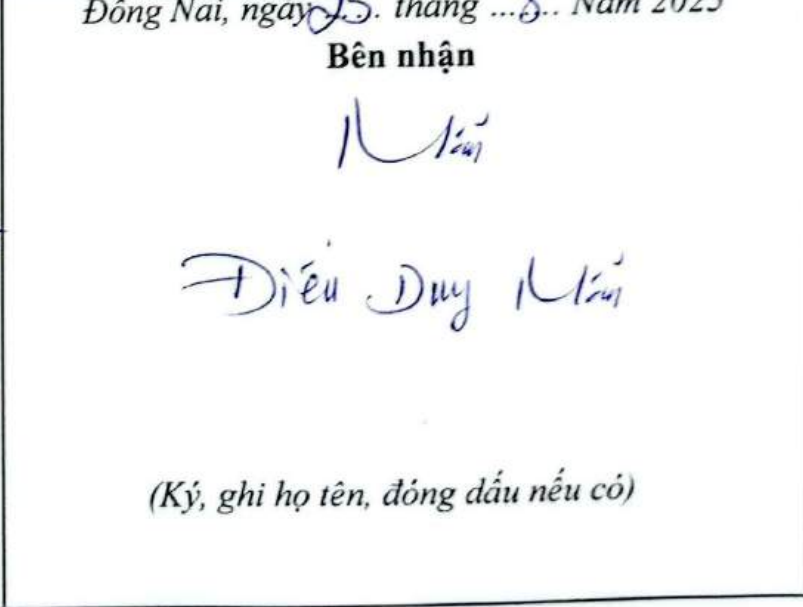 Đồng Nai, ngày 25. tháng ...8.. Năm 2025
Bên nhận
Điểu Duy
(Ký, ghi họ tên, đóng dấu nếu có)